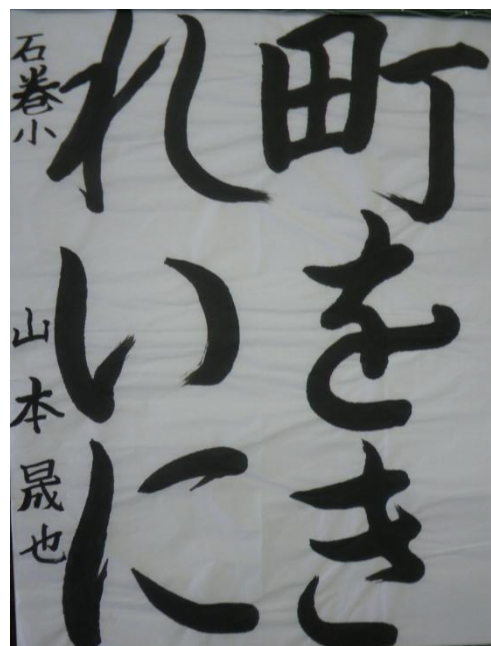 町をき
れいに
石巻小 山本晟也